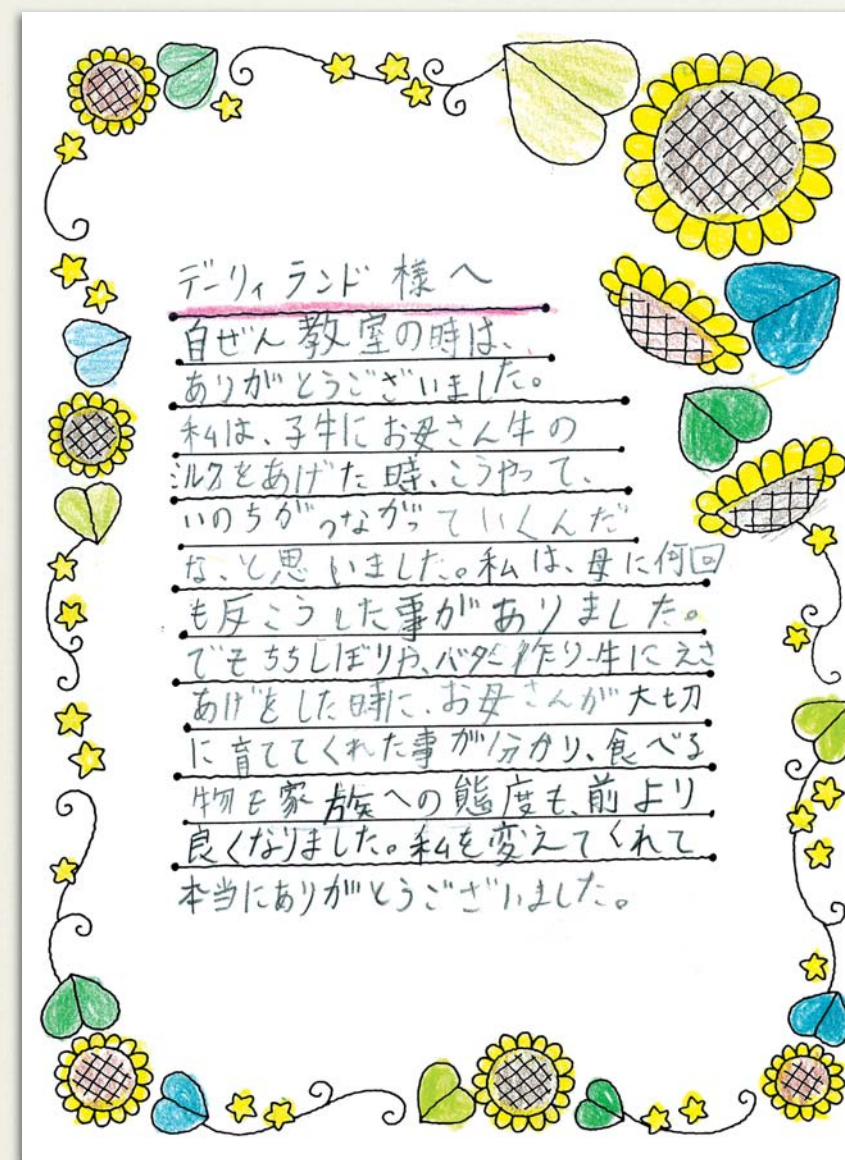 デーリィランド様へ
自ぜん教室の時は、
ありがとうございました。
私は、子牛にお母さん牛の
ミルクをあげた時、こうやって、
いのちがつながっていくんだ
な、と思いました。私は、母に何回
も反こうした事がありました。
でもちちしぼりや、バター作り、牛にえさ
あげをした時に、お母さんが大切
に育ててくれた事が分かり、食べる
物も家族への態度も、前より
良くなりました。私を変えてくれて
本当にありがとうございました。